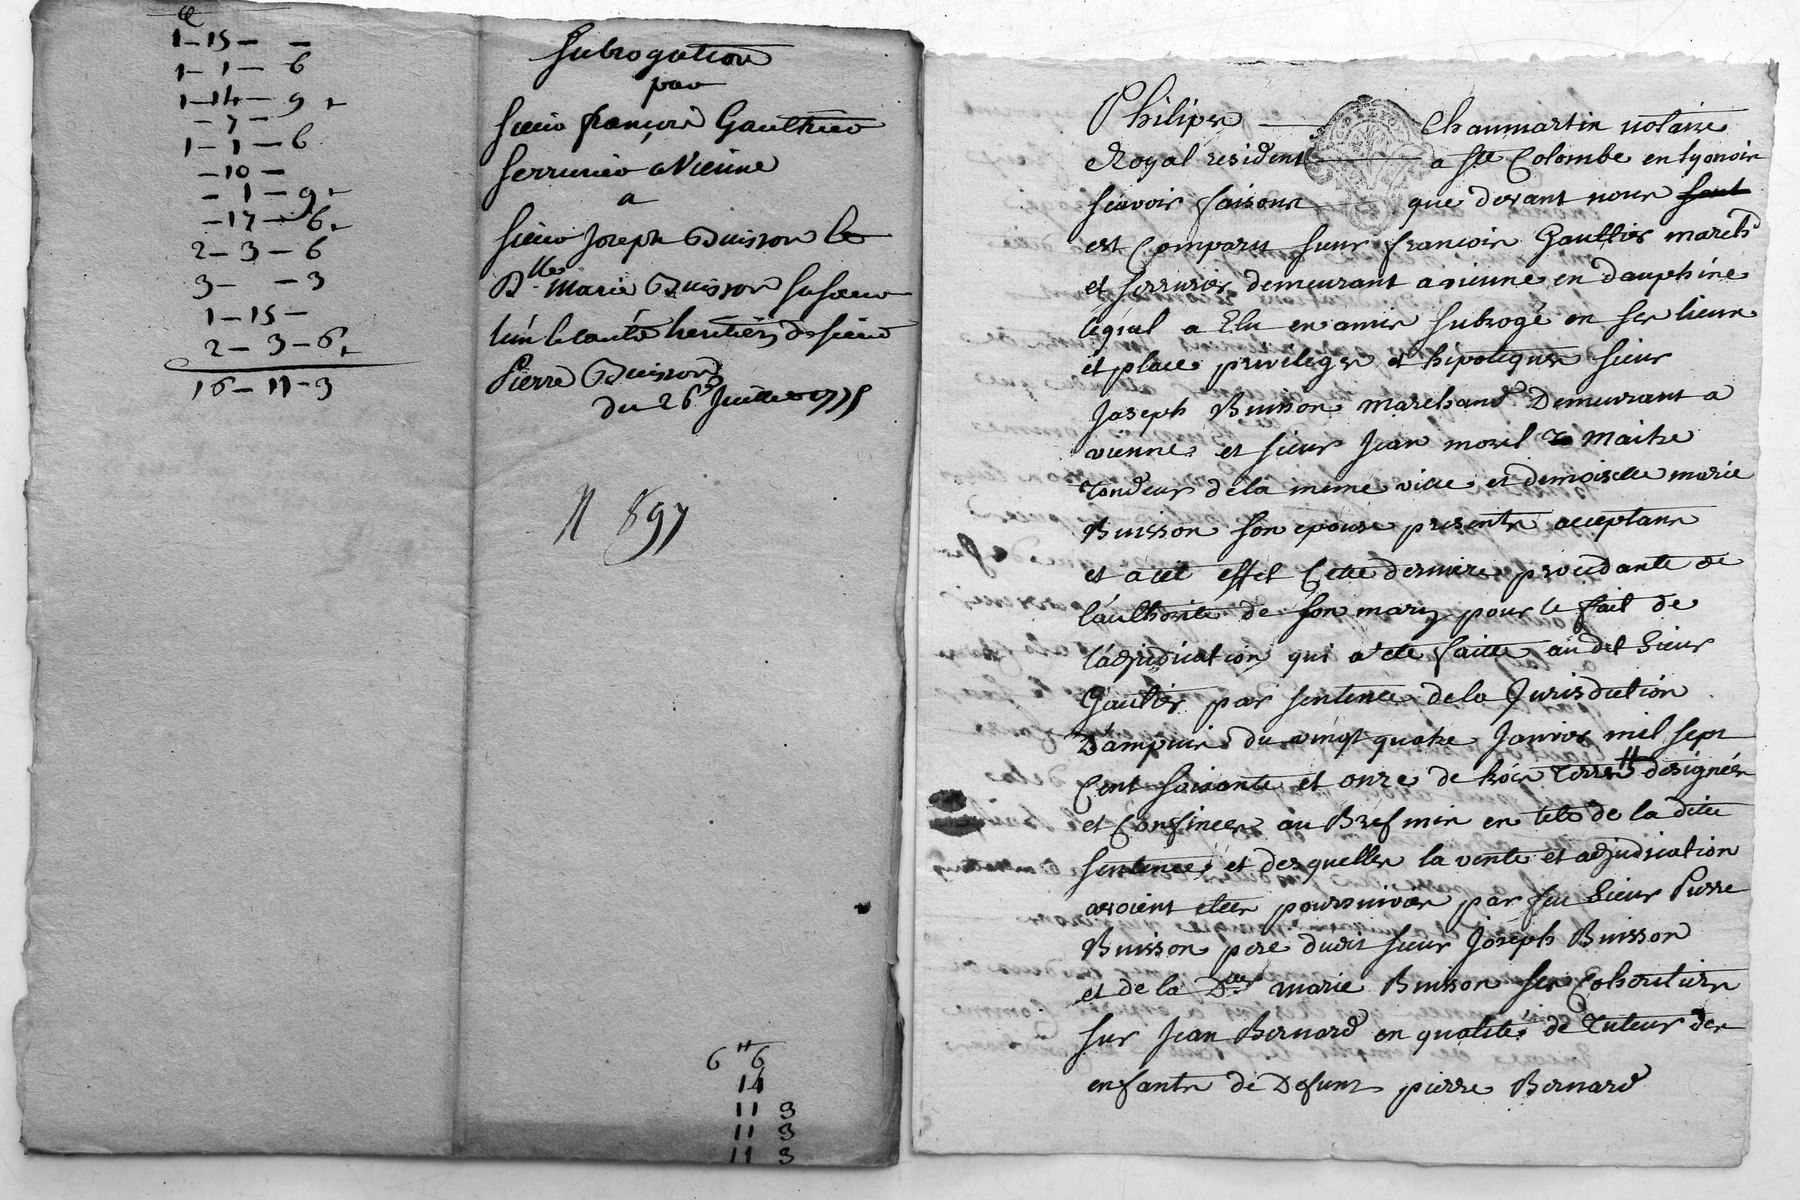 1 - 15 -  -
1 - 1 - 6
1 - 14 - 9
- 7 -
1 - 1 - 6
- 10 -
- 1 - 9
- 17 - 6
2 - 3 - 6
3 -  - 3
1 - 15 -
2 - 3 - 6
16 - 11 - 3
Subrogation
par
Sieur françois Gauthier
Serrurier a Vienne
a
Sieur Joseph Buisson &
Dlle Marie Buisson sa soeur
heritiers de sieur
Pierre Buisson
du 26e Juillet 1775
N 897
6 # 6
14
11 3
11 3
11 3
Philipe Chaumartin notaire
Royal resident a Ste Colombe en lyonois
scavoir faisons que devant nous
est Comparu sieur françois Gaultier march
et serrurier demeurant a vienne en dauphiné
lequel a Elu en amis subrogé en ses lieux
et place privileges et hipoteques sieur
Joseph Buisson marchand Demeurant a
vienne et sieur Jean morel Maitre
Tondeur dela meme ville et demoiselle marie
Buisson son epouse presents acceptans
et acet effet Cette derniere procedante de
l'authorité de son mary pour le fait de
l'adjudication qui a eté faitte au dit Sieur
Gaultier par sentence dela Jurisdiction
D'ampuis du vingt quatre Janvier mil sept
Cent soixante et onze de trois Terres designées
et Confinées au Bref mis en tete de la dite
sentence et desquelles la vente et adjudication
avoient etées poursuivies par feu Sieur Pierre
Buisson pere dudit sieur Joseph Buisson
et de la Dlle marie Buisson ses Coheritiers
sur Jean Bernard en qualité de Tuteur des
enfants de Defunt pierre Bernard